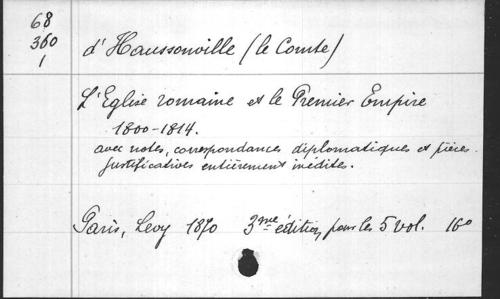 68
360
1
d'Haussonville (le Comte)
L'Eglise romaine et le Premier Empire
1800-1814.
avec notes, correspondances diplomatiques et pièces
justificatives entièrement inédites.
Paris, Levy 1870 3me édition, pour les 5 vol. 16o